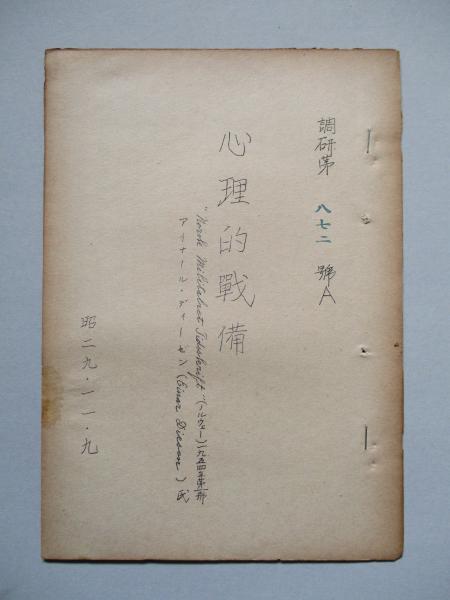 調研第 八七二 號A
心理的戰備
"Norsk Militært Tidsskrift"(ノルウェー)一九五四年第一部
アイナール・ディーセン(Einar Diesen)氏
昭二九・一一・九